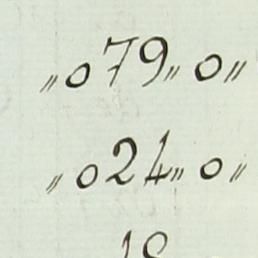 „079„0„
„024„0„
18